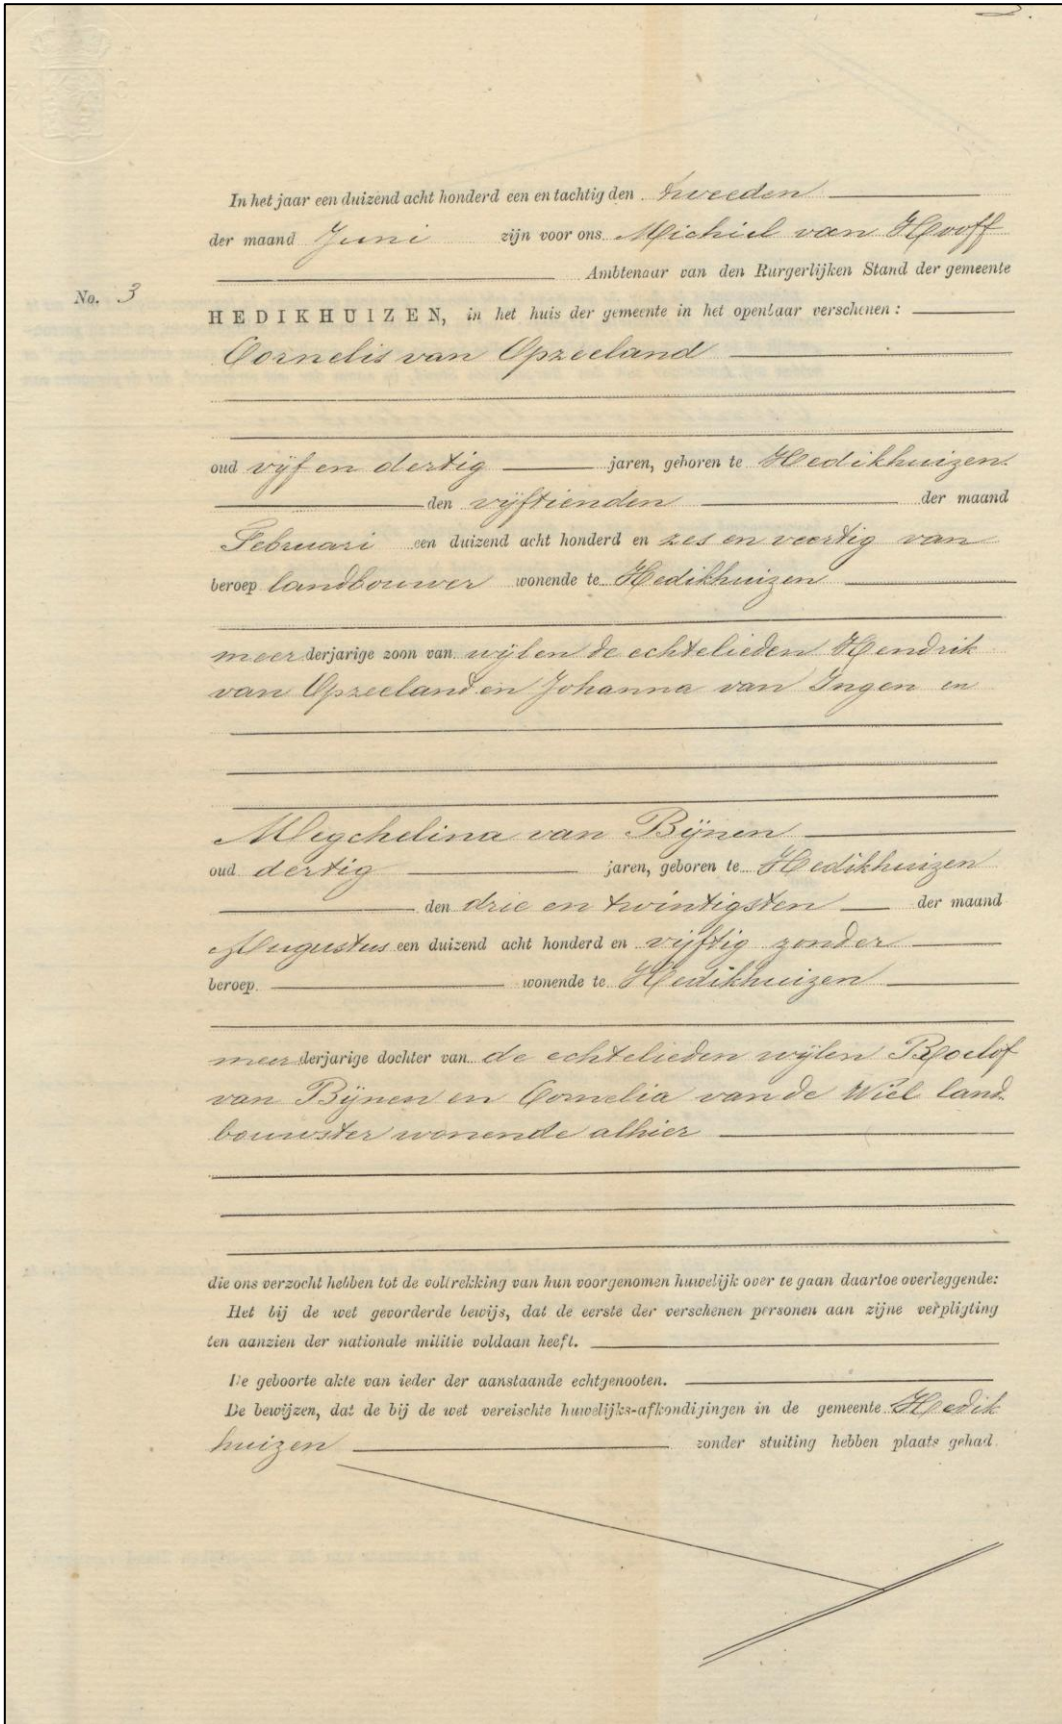 3.
In het jaar een duizend acht honderd een en tachtig den tweeden
der maand Juni zijn voor ons Michiel van Hooff
Ambtenaar van den Burgerlijken Stand der gemeente
No. 3
HEDIKHUIZEN, in het huis der gemeente in het openbaar verschenen:
Cornelis van Opzeeland
oud vijf en dertig jaren, geboren te Hedikhuizen
den vijftienden der maand
Februari een duizend acht honderd en zes en veertig van
beroep landbouwer wonende te Hedikhuizen
meerderjarige zoon van wijlen de echtelieden Hendrik
van Opzeeland en Johanna van Ingen en
Megchelina van Bijnen
oud dertig jaren, geboren te Hedikhuizen
den drie en twintigsten der maand
Augustus een duizend acht honderd en vijftig zonder
beroep wonende te Hedikhuizen
meerderjarige dochter van de echtelieden wijlen Roelof
van Bijnen en Cornelia van de Wiel land-
bouwster wonende alhier
die ons verzocht hebben tot de voltrekking van hun voorgenomen huwelijk over te gaan daartoe overleggende:
Het bij de wet gevorderde bewijs, dat de eerste der verschenen personen aan zijne verpligting
ten aanzien der nationale militie voldaan heeft.
De geboorte akte van ieder der aanstaande echtgenooten.
De bewijzen, dat de bij de wet vereischte huwelijks-afkondigingen in de gemeente Hedik
huizen zonder stuiting hebben plaats gehad.